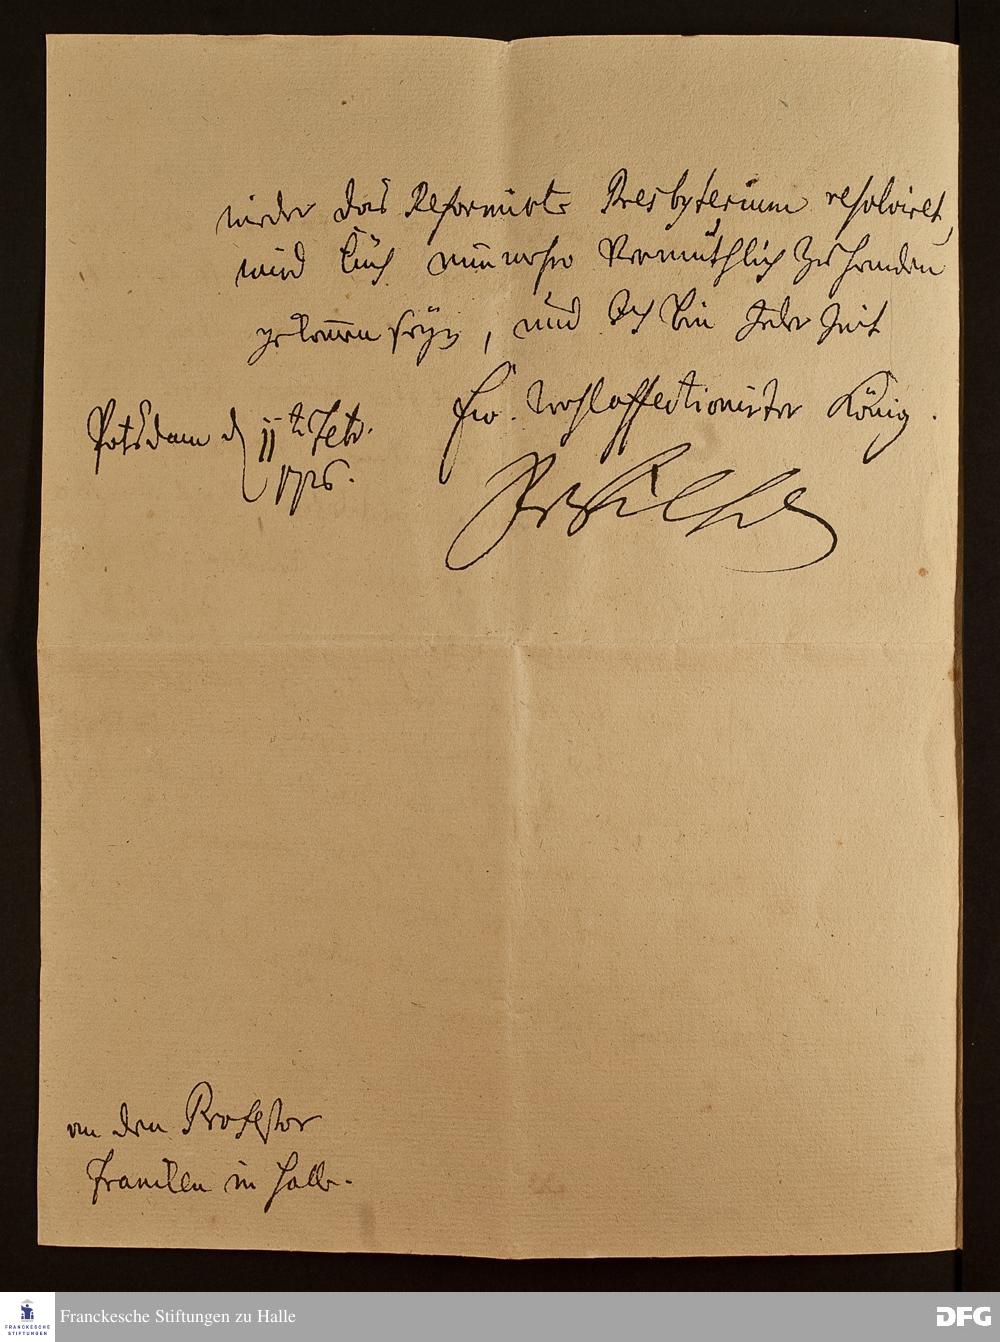 wieder das Reformirte Presbyterium resolviret,
wird Euch nunmehro Vermuthlich zu Handen
gekommen seyn, und Ich bin Jeder Zeit
Ew. wohlaffectionirter König.
Potsdam d 11t Febr.
1726.
FrWilhelm
an den Professor
Francken in Halle.
FRANCKESCHE
STIFTUNGEN
Franckesche Stiftungen zu Halle
DFG